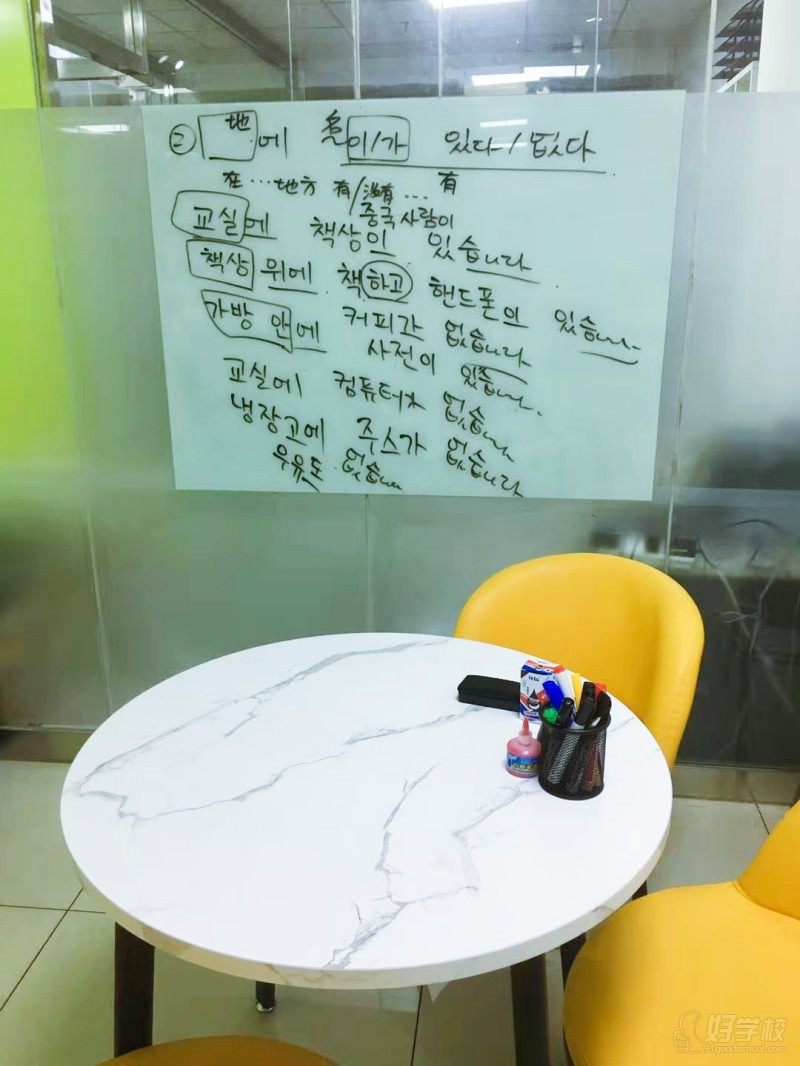 ② 地에 이/가 있다/없다
在…地方 有/没有… 有
중국사람이
교실에 책상이 있습니다
책상 위에 책하고 핸드폰이 있습니다
가방 안에 커피가 없습니다
사전이 있습니다
교실에 컴퓨터가 없습니다
냉장고에 주스가 없습니다
우유도 없습니다
好学校
91goodschool.com